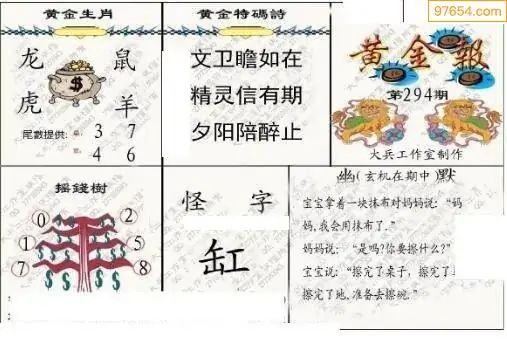 97654.com
黄金生肖
龙 鼠
虎 羊
尾數提供: 3 7
4 6
黄金特碼詩
文卫瞻如在
精灵信有期
夕阳陪醉止
黄金報
第294期
大兵工作室制作
摇錢樹
0 2
1 5
7 8
怪 字
缸
幽(玄机在期中)默
宝宝拿着一块抹布对妈妈说: "妈
妈,我会用抹布了."
妈妈说: "是吗?你要擦什么?"
宝宝说: "擦完了桌子, 擦完了
擦完了地,准备去擦碗."